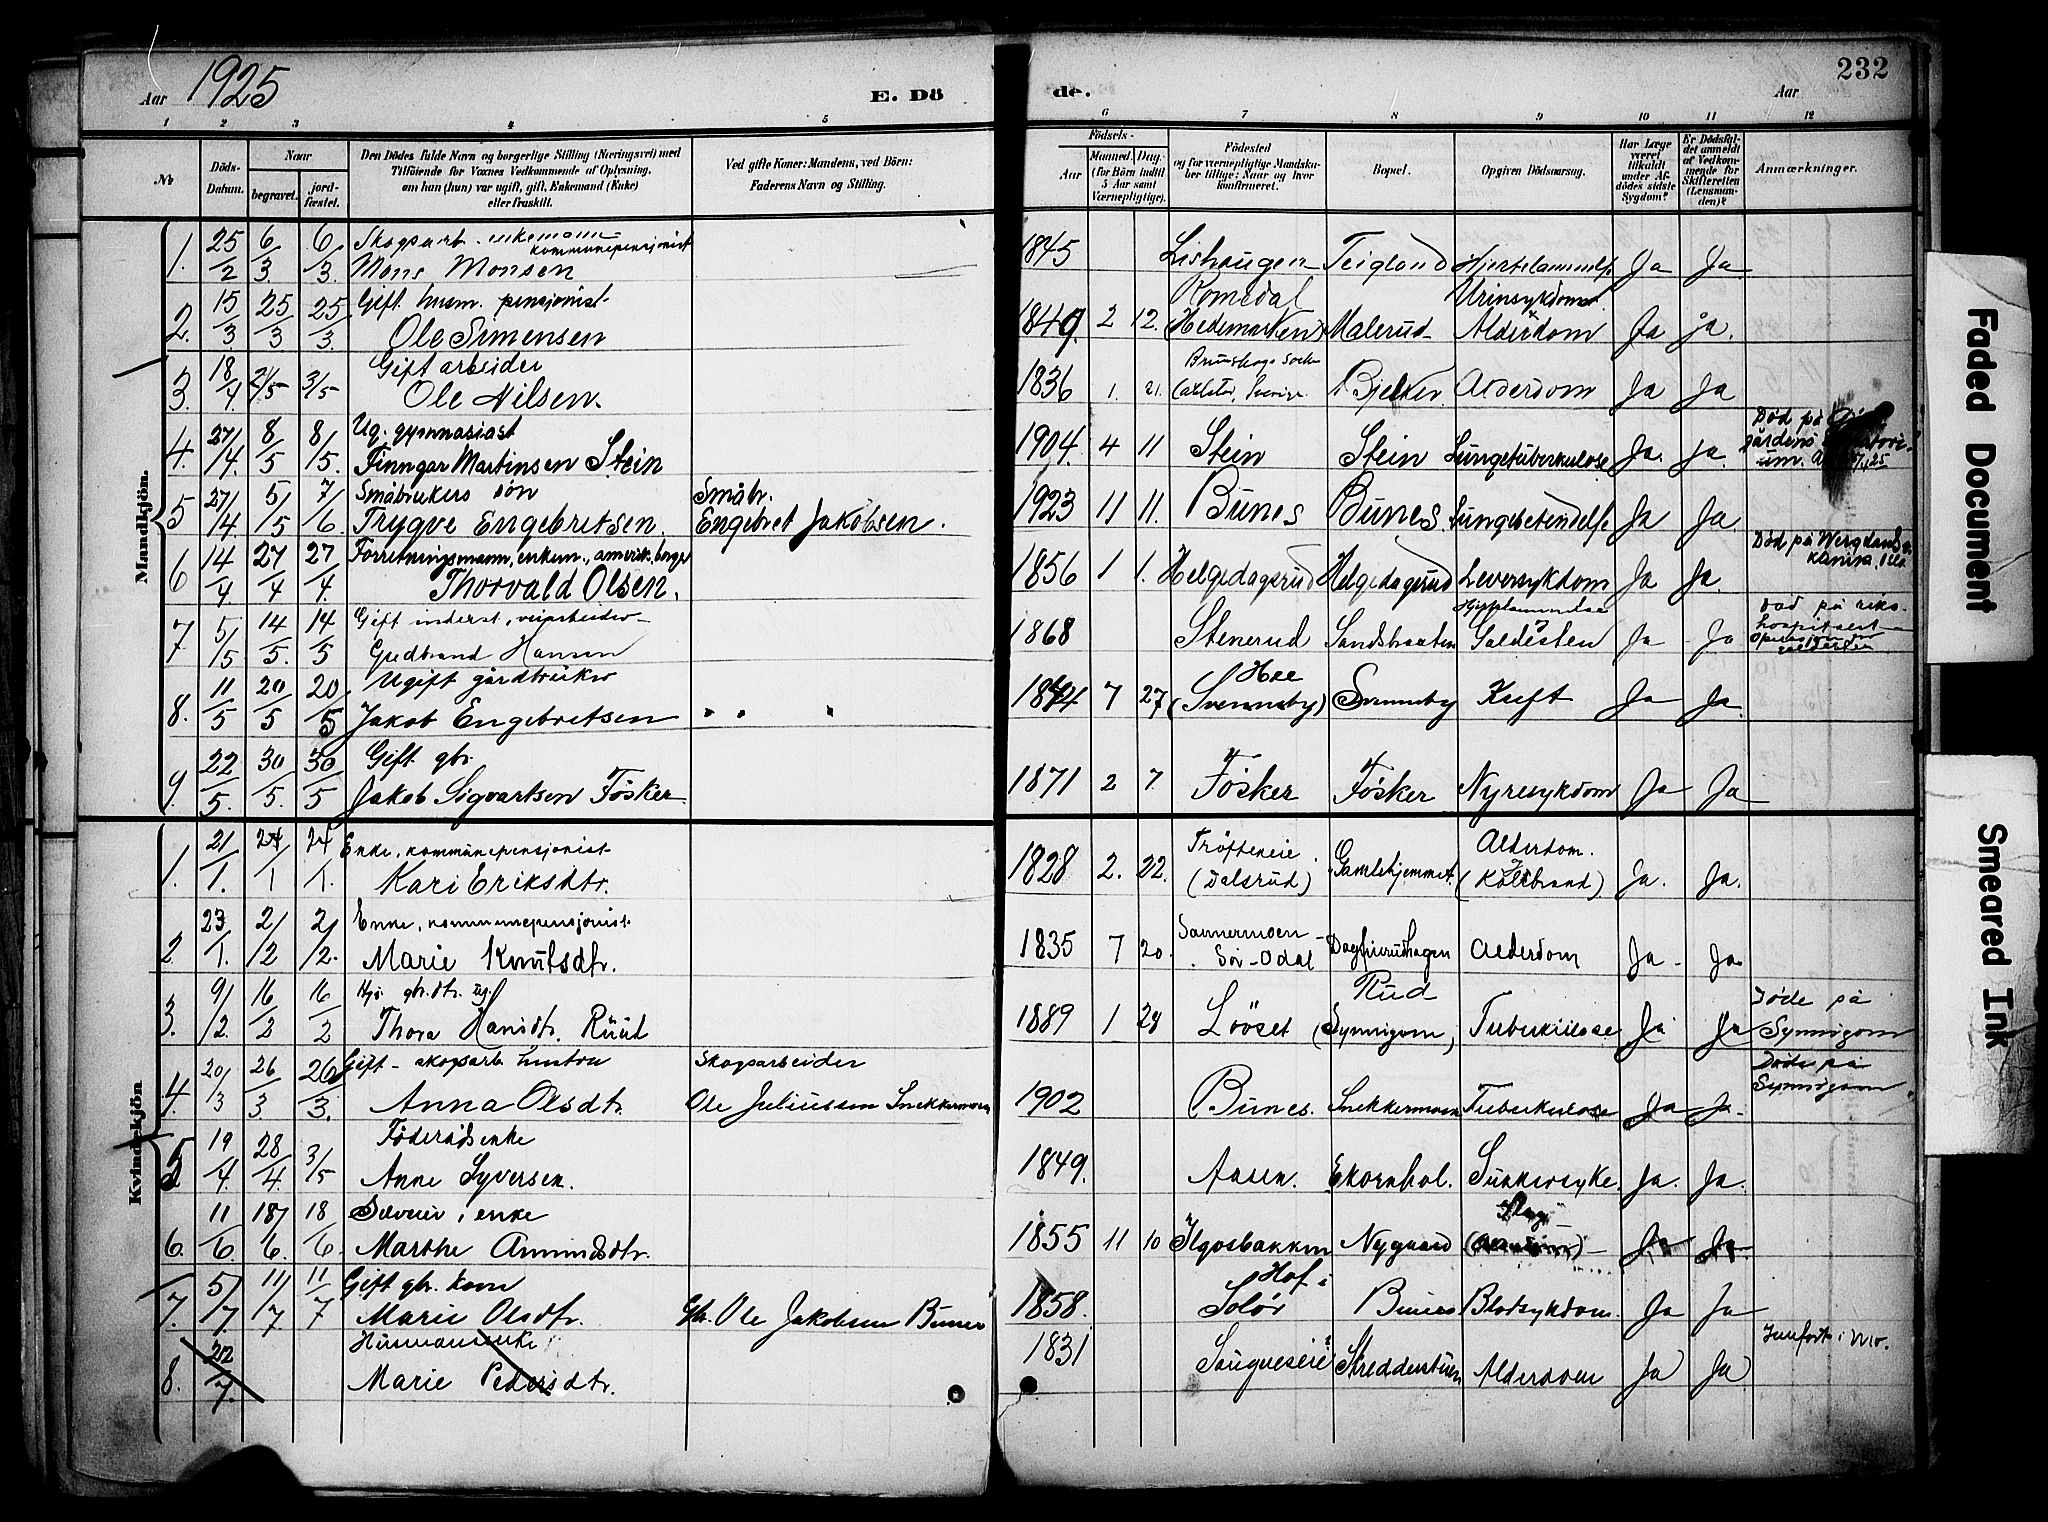 Aar 1925 E. Dö de. Aar 232
1 2 3 4 5 6 7 8 9 10 11 12
№ Döds-Datum. Naar begravet. jord-fæstet. Den Dödes fulde Navn og borgerlige Stilling (Næringsvei) med Tilföiende for Voxnes Vedkommende af Oplysning, om han (hun) var ugift, gift, Enkemand (Enke) eller fraskilt. Ved gifte Koner: Mandens, ved Börn: Faderens Navn og Stilling. Födsels- Aar Maaned. Dag. (for Börn indtil 5 Aar samt Værnepligtige). Födested og for værnepligtige Mandskaber tillige: Naar og hvor konfirmeret. Bopæl. Opgiven Dödsaarsag. Har Læge været tilkaldt under Afdödes sidste Sygdom? Er Dödsfaldet anmeldt af Vedkommende for Skifteretten (Lensmanden)? Anmærkninger.
Mandkjön.
1. 25/2 6/3. 6/3. Skogsarb. enkemann kommunepensjonist
Mons Monsen 1845 Lishaugen Teigland Ja Ja
2. 15/3 25/3 25/3. Gift husm. pensjonist
Ole Simensen 1849. 2 12. Romedal (Hedemarken) Malerud Urinsykdom Alderdom Ja ja.
3. 18/4 2/5 3/5 Gift arbeider
Ole Nilsen. 1836 1. 21. Alderdom Ja Ja
4. 27/4. 8/5 8/5. Ug. gymnasiast
Finngar Martinsen Stein 1904. 4 11 Stein Stein Lungetuberkulose Ja. ja. Død på
5 27/4 5/5 7/6 Småbrukers søn Småbr.
Trygve Engebretsen. Engebret Jakobsen. 1923 11 11. Bunes Bunes. Lungebetendelse Ja Ja.
6 14/4 27/4 27/4. Forretningsmann, enkem., amerik. borger
Thorvald Olsen. 1856 1 1. Helgedagsrud Helgedagsrud Leversykdom Ja Ja. Død på klinikk,
7 5/5 14/5. 14/5 Gift inderst,
Gudbrand Hansen 1868 Stenerud Sandbraaten Galdesten Ja Ja Død på riks-
hospitalet
8. 11/5 20/5 20/5 Ugift gårdbruker
Jakob Engebretsen 7 27 Hee (Svennsby) Svennsby Kreft Ja Ja.
9. 22/5. 30/5. 30/5 Gift gbr.
Jakob Sigvartsen Fösker 1871 2 7 Fösker Fösker Nyresykdom Ja Ja
Kvindekjön
1. 21/1. 24/1 24/1. Enke, kommunepensjonist
Kari Eriksdtr. 1828 2. 22. Tröfteneie. (Dalsrud) Gamlehjemmet. Alderdom. (Koldbrand) Ja. Ja.
2 23/1. 2/2 2/2. Enke, kommunepensjonist
Marie Knutsdtr. 1835 7 20. Sør-Odal Alderdom Ja Ja
3. 9/2. 16/2 16/2 gbr.dtr. ug.
Thora Hansdtr. Rüüd 1889 1 Lööset Rud (Synnigom) Tuberkulose Ja Ja Døde på
Synnigom
4. 20/3 26/3 26/3. Gift skogsarb. hustru Skogsarbeider
Anna Olsdtr. Ole Juliussen Snekkermoen 1902 Bunes. Snekkermoen Tuberkulose Ja Ja Døde på
Synnigom
5 19/4 28/4. 3/5 Føderådsenke
Anne Syversen. 1849. Aasen. Ekornhol. Sukkersyke. Ja. Ja.
6. 11/6 18/6. 18/6. enke
Marthe Amundsdtr. 1855 11 10 Ilgosbakken Nygaard Slag Ja Ja
7. 5/7. 11/7 11/7 Gift gbr. kone
Marie Olsdtr. Gbr. Ole Jakobsen Bunes 1858. Hof i Solør Bunes Blodsykdom. Ja Ja
8. 22/7. Husmannsenke
Marie Pedersdtr. 1831 Alderdom Ja Ja
Faded Document
Smeared Ink